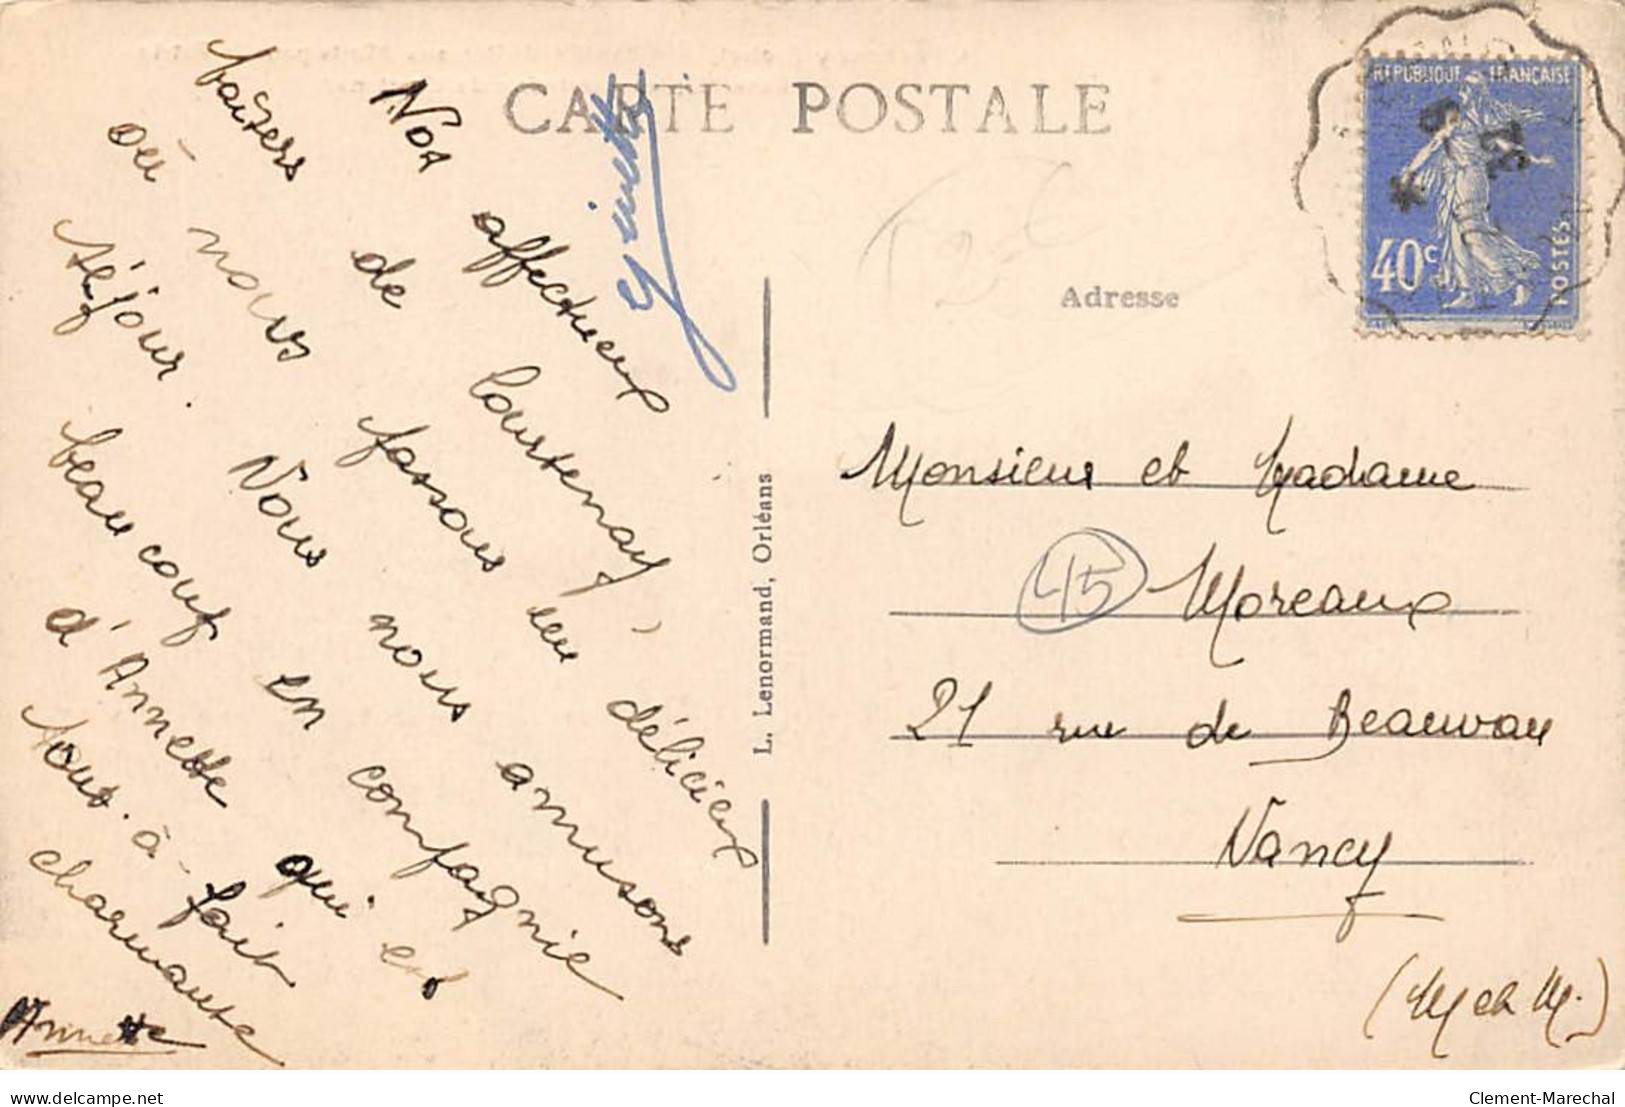 CARTE POSTALE
Nos affectueux
baisers de Courtenay,
où nous fassons un délicieux
séjour. Nous nous amusons
beaucoup en compagnie
d'Annette qui est
tout-à-fait
charmante
Annette
Ginette
L. Lenormand, Orléans
Adresse
RÉPUBLIQUE FRANÇAISE
40c
POSTES
Monsieur et Madame
45
Moreaux
21 rue de Beauvau
Nancy
(M et M.)
delcampe.net
Clement-Marechal